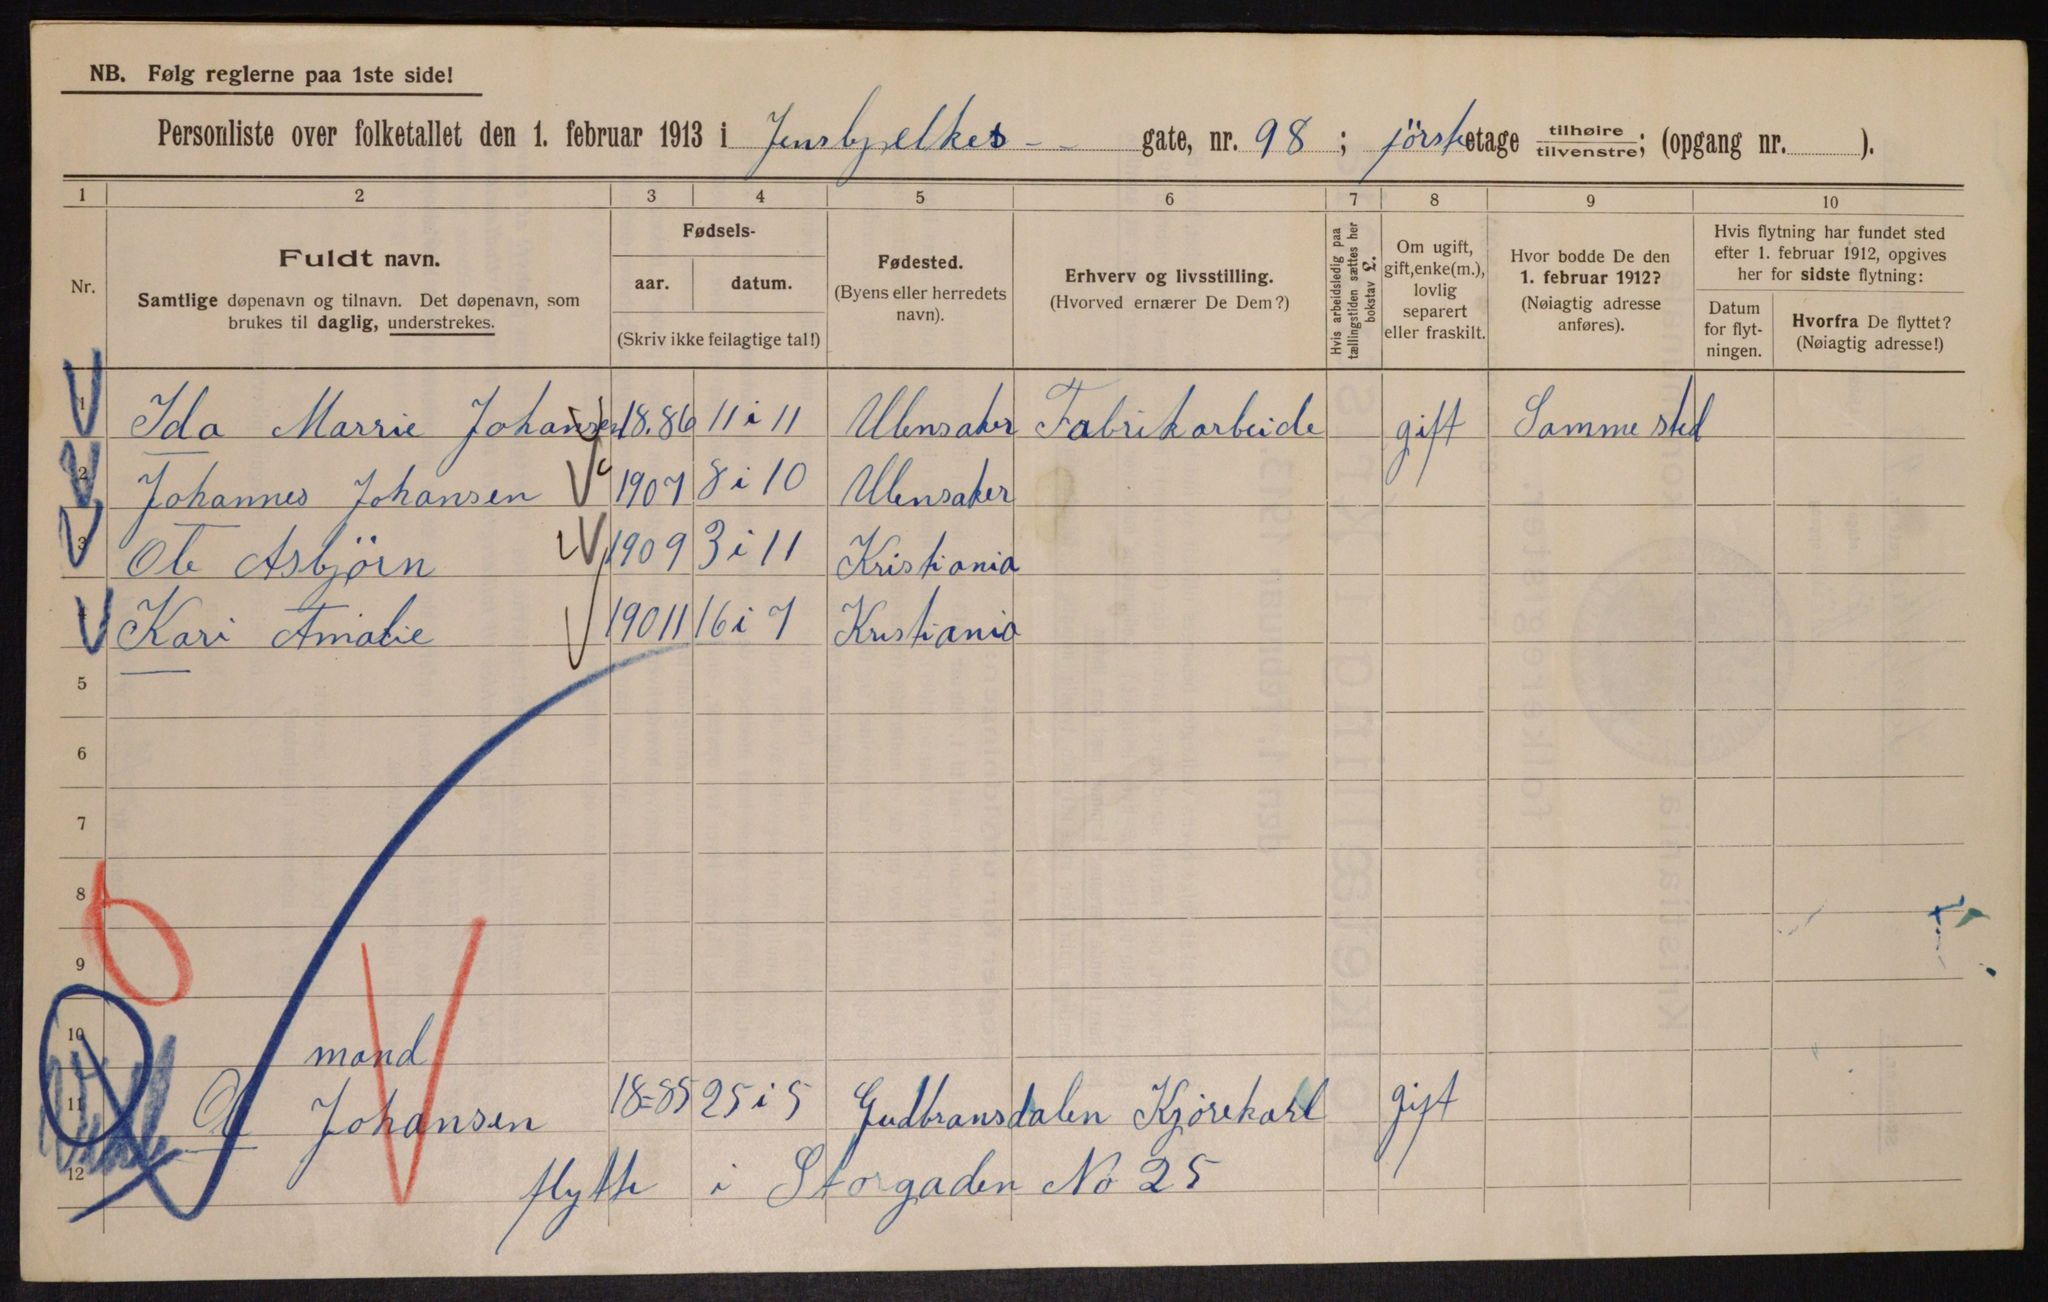 NB. Følg reglerne paa 1ste side!
Personliste over folketallet den 1. februar 1913 i Jensbjelkes - - gate, nr. 98 ; förste etage tilhøire tilvenstre; (opgang nr. ).
1 2 3 4 5 6 7 8 9 10
Nr.
Fuldt navn.
Samtlige døpenavn og tilnavn. Det døpenavn, som
brukes til daglig, understrekes.
Fødsels-
aar. datum.
(Skriv ikke feilagtige tal!)
Fødested.
(Byens eller herredets
navn).
Erhverv og livsstilling.
(Hvorved ernærer De Dem?)
Hvis arbeidsledig paa
tællingstiden sættes her
bokstav £.
Om ugift,
gift, enke(m.),
lovlig
separert
eller fraskilt.
Hvor bodde De den
1. februar 1912?
(Nøiagtig adresse
anføres).
Hvis flytning har fundet sted
efter 1. februar 1912, opgives
her for sidste flytning:
Datum
for flyt-
ningen.
Hvorfra De flyttet?
(Nøiagtig adresse!)
1 Ida Marrie Johansen 18.86 11 i 11 Ulensaker Fabrikarbeide gift Samme sted
2 Johannes Johansen 1907 8 i 10 Ulensaker
3 Ole Asbjörn 1909 3 i 11 Kristiania
Kari Amalie 19011 16 i 7 Kristiania
5
6
7
8
9
10 mand
11 Ole Johansen 18=85 25 i 5 Gudbransdalen Kjörekarl gift
12 flytte i Storgaden No 25